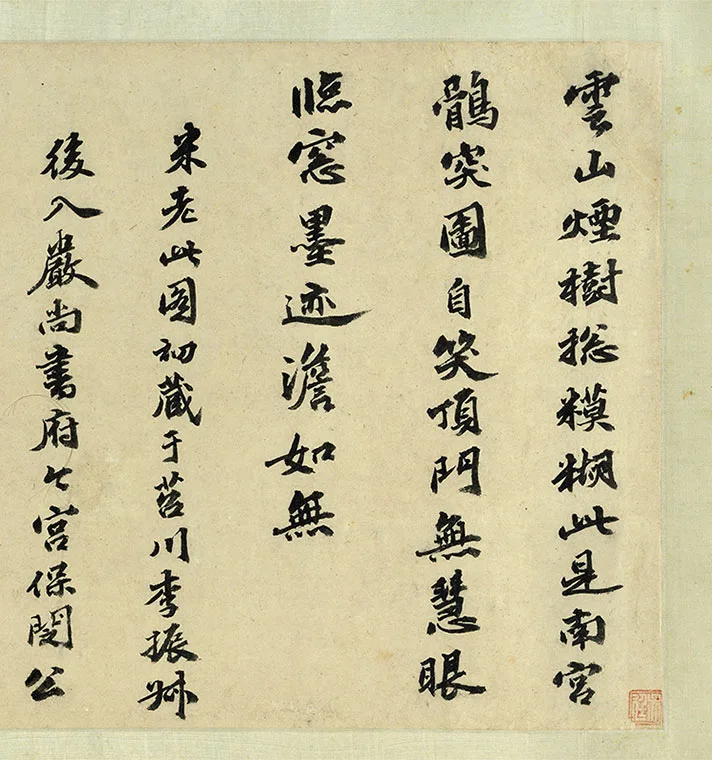 雲山煙樹總糢糊此是南宮
鶻突圖自笑頂門無慧眼
臨窓墨迹澹如無
米老此圖初藏于苕川李振叔
後入嚴尚書府今宮保閻公